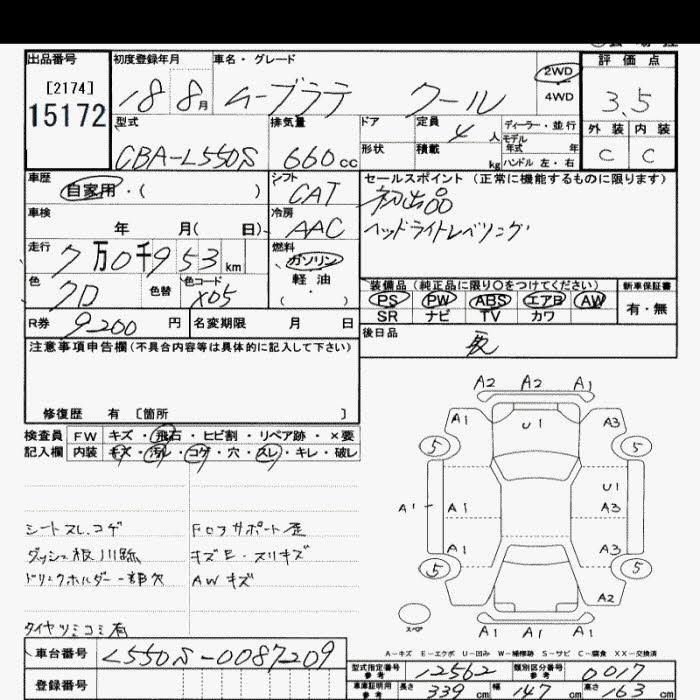 出品番号 初度登録年月 車名・グレード 評価点
[2174]
15172
18 8月 ムーブラテ クール 2WD 4WD 3.5
型式 排気量 ドア 定員 4人 ディーラー・並行 外装 内装
形状 積載 kg モデル年式 年
ハンドル 左・右
CBA-L550S 660cc C C
車歴 シフト セールスポイント (正常に機能するものに限ります)
自家用・( ) CAT 初出品
車検 冷房 ヘッドライトレベリング
年 月( 日) AAC
走行 燃料
7万0千953km ガソリン
色 色替 色コード 軽油 装備品(純正品に限り○をつけてください) 新車保証書
クロ X05 ( ) PS PW ABS エアB AW 有・無
SR ナビ TV カワ
R券 9200円 名変期限 月 日 後日品
注意事項申告欄(不具合内容等は具体的に記入して下さい)
修復歴 有 [箇所 ]
A2 A2 A1
A1 U1 A3
検査員 FW キズ・飛石・ヒビ割・リペア跡・×要
記入欄 内装 キズ・汚レ・コゲ・穴・スレ・キレ・破レ
5 5
U1
A1 A1 A3
シートスレ.コゲ Fロアサポート歪
ダッシュ板川跡 キズE・スリキズ
A1 A3
ドリンクホルダー一部欠 AWキズ
5 5
A2
タイヤツミコミ有
スペア A1 A1 A1
A-キズ E-エクボ U-凹み W-補修跡 S-サビ C-腐食 XX-交換済
車台番号 L550S-0087209
型式指定番号 参考 12562 類別区分番号 参考 0017
登録番号
車庫証明用 参考 長さ 339cm 幅 147cm 高さ 163cm